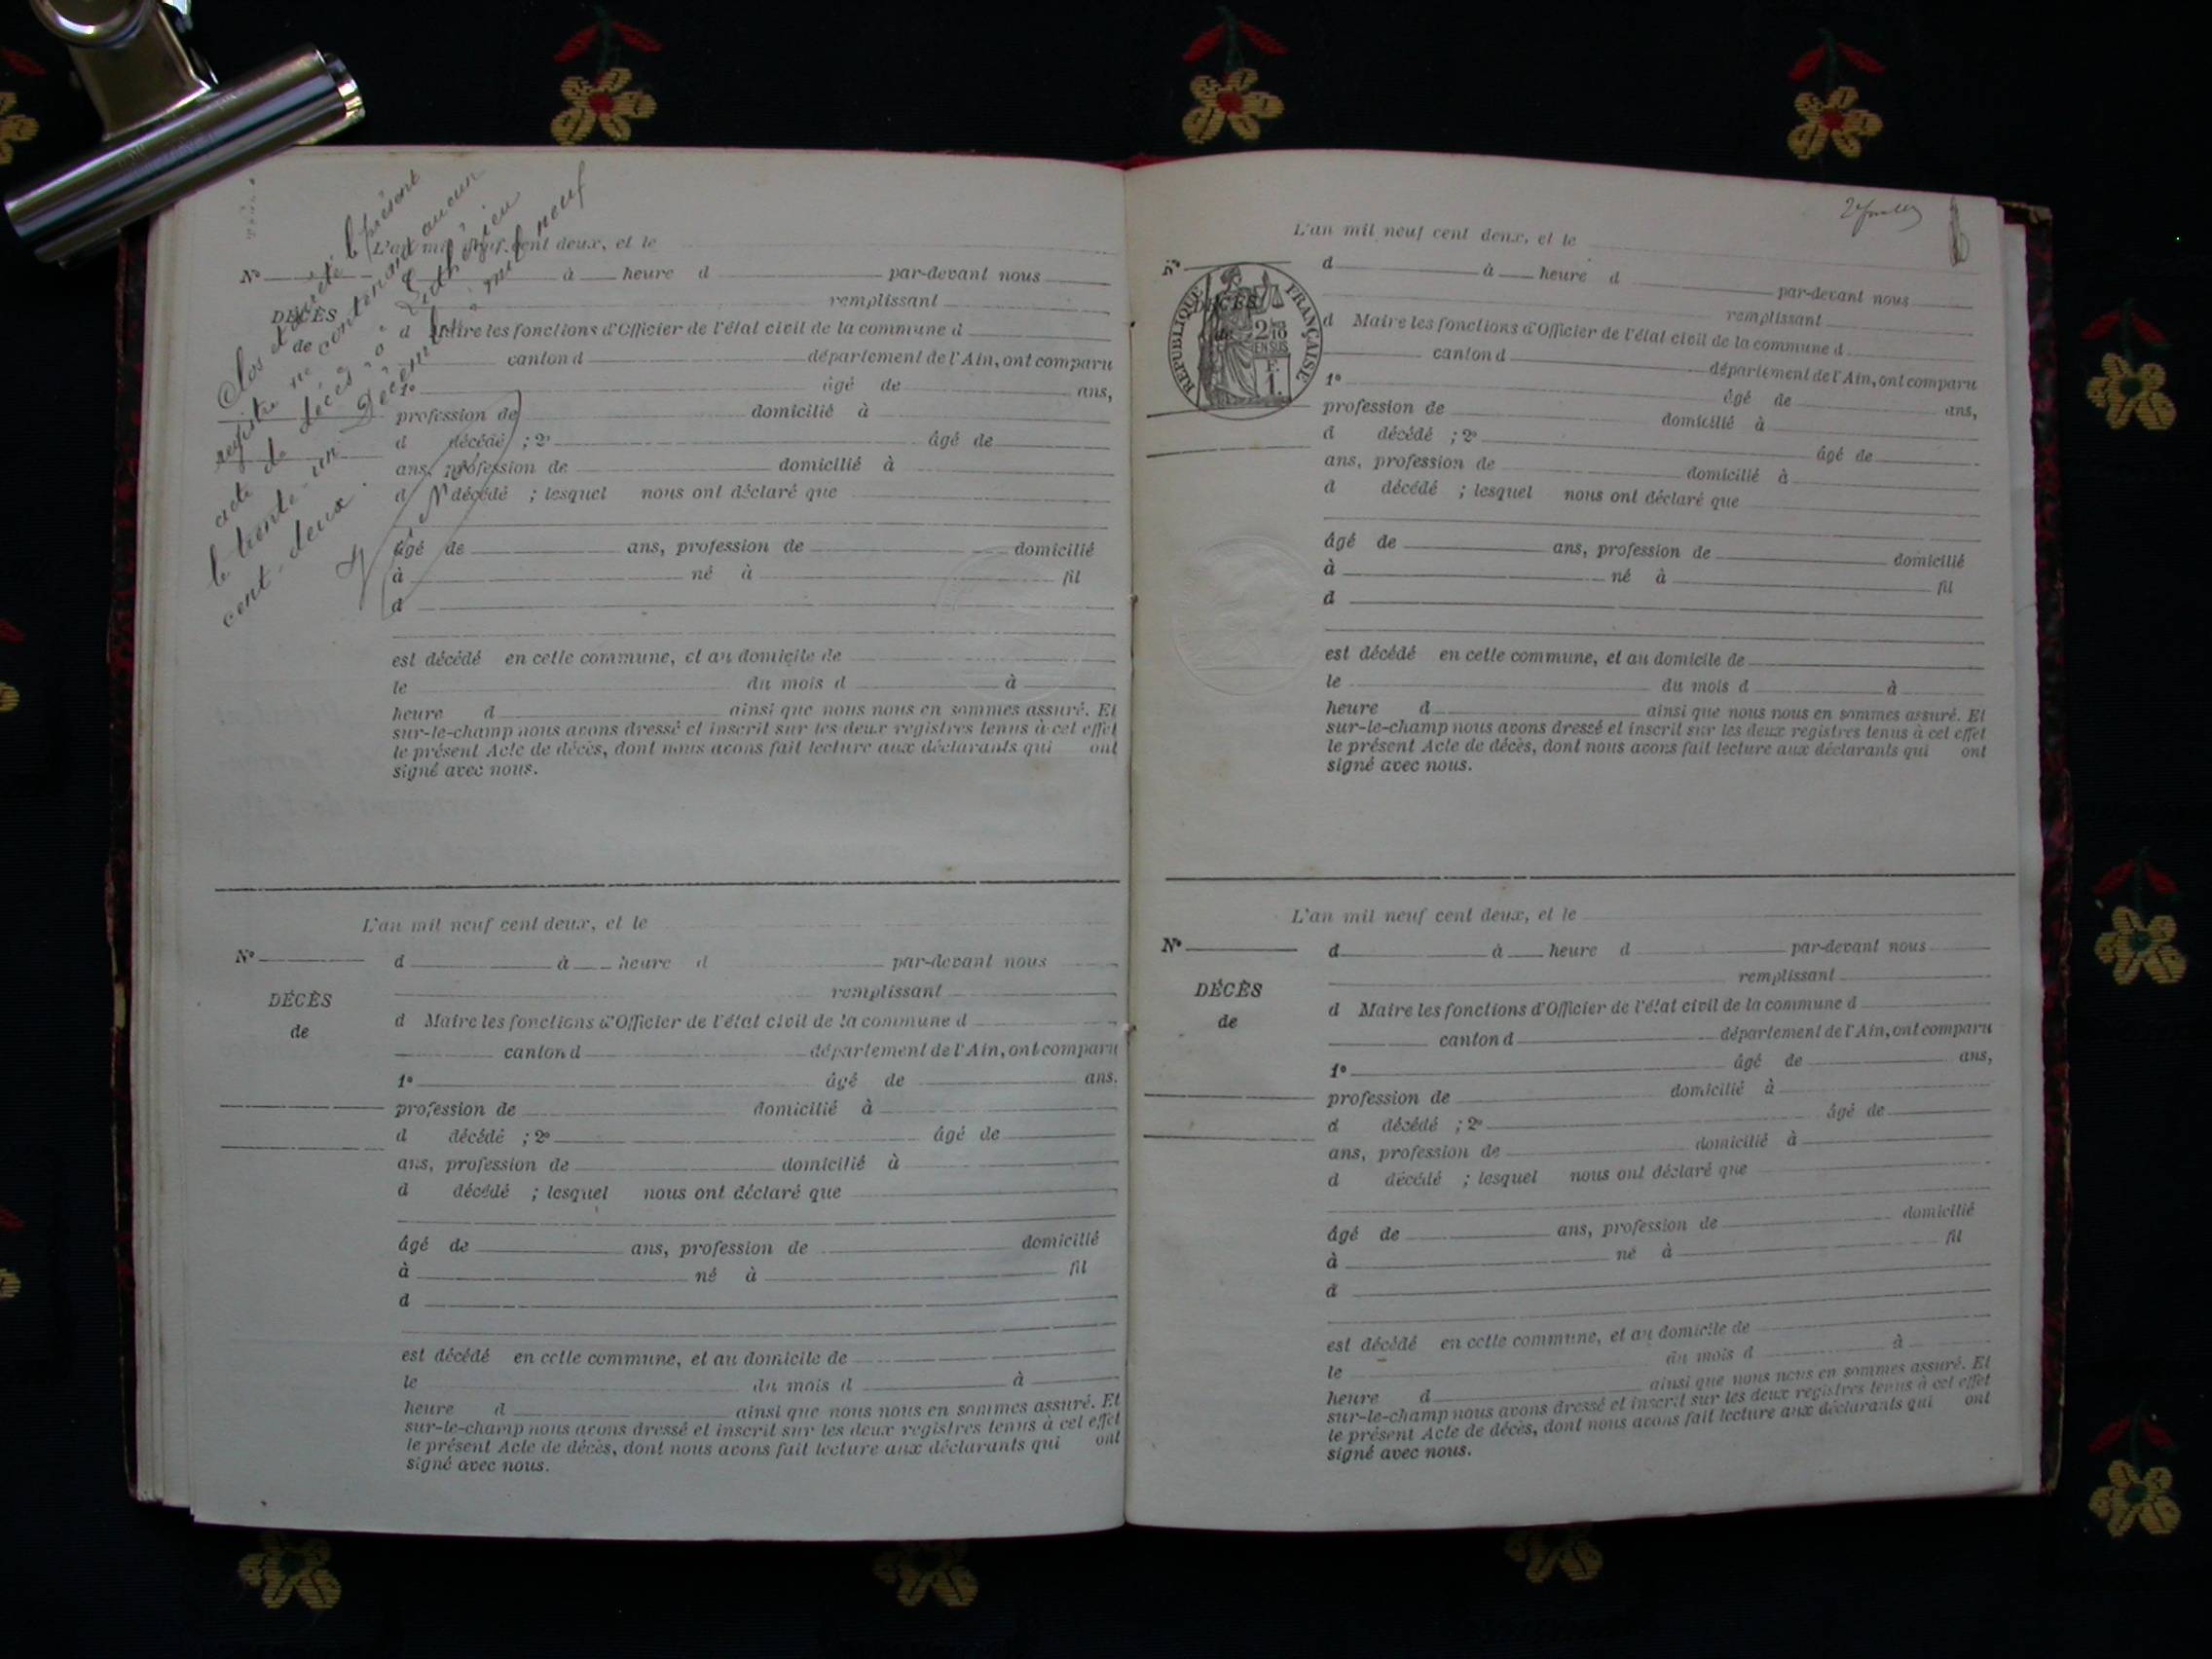 Clos et arrêté le présent
registre ne contenant aucun
acte de décès à Luthézieu
le trente-un Décembre mil neuf
cent-deux.
L'an mil neuf cent deux, et le
N° à heure d par-devant nous
DÉCÈS
de
remplissant
d Maire les fonctions d'Officier de l'état civil de la commune d
canton d département de l'Ain, ont comparu
1° âgé de ans,
profession de domicilié à
d décédé ; 2° âgé de
ans, profession de domicilié à
d décédé ; lesquel nous ont déclaré que
âgé de ans, profession de domicilié
à né à fil
d
est décédé en cette commune, et au domicile de
le du mois d à
heure d ainsi que nous nous en sommes assuré. Et
sur-le-champ nous avons dressé et inscrit sur les deux registres tenus à cet effet
le présent Acte de décès, dont nous avons fait lecture aux déclarants qui ont
signé avec nous.
L'an mil neuf cent deux, et le
N° d à heure d par-devant nous
DÉCÈS
de
remplissant
d Maire les fonctions d'Officier de l'état civil de la commune d
canton d département de l'Ain, ont comparu
1° âgé de ans.
profession de domicilié à
d décédé ; 2° âgé de
ans, profession de domicilié à
d décédé ; lesquel nous ont déclaré que
âgé de ans, profession de domicilié
à né à fil
d
est décédé en cette commune, et au domicile de
le du mois d à
heure d ainsi que nous nous en sommes assuré. Et
sur-le-champ nous avons dressé et inscrit sur les deux registres tenus à cet effet
le présent Acte de décès, dont nous avons fait lecture aux déclarants qui ont
signé avec nous.
L'an mil neuf cent deux, et le
N° d à heure d par-devant nous
DÉCÈS
de
RÉPUBLIQUE FRANÇAISE
2/10
EN SUS
F.
1.
remplissant
d Maire les fonctions d'Officier de l'état civil de la commune d
canton d département de l'Ain, ont comparu
1° âgé de ans,
profession de domicilié à
d décédé ; 2° âgé de
ans, profession de domicilié à
d décédé ; lesquel nous ont déclaré que
âgé de ans, profession de domicilié
à né à fil
d
est décédé en cette commune, et au domicile de
le du mois d à
heure d ainsi que nous nous en sommes assuré. Et
sur-le-champ nous avons dressé et inscrit sur les deux registres tenus à cet effet
le présent Acte de décès, dont nous avons fait lecture aux déclarants qui ont
signé avec nous.
L'an mil neuf cent deux, et le
N° d à heure d par-devant nous
DÉCÈS
de
remplissant
d Maire les fonctions d'Officier de l'état civil de la commune d
canton d département de l'Ain, ont comparu
1° âgé de ans,
profession de domicilié à
d décédé ; 2° âgé de
ans, profession de domicilié à
d décédé ; lesquel nous ont déclaré que
âgé de ans, profession de domicilié
à né à fil
d
est décédé en cette commune, et au domicile de
le du mois d à
heure d ainsi que nous nous en sommes assuré. Et
sur-le-champ nous avons dressé et inscrit sur les deux registres tenus à cet effet
le présent Acte de décès, dont nous avons fait lecture aux déclarants qui ont
signé avec nous.